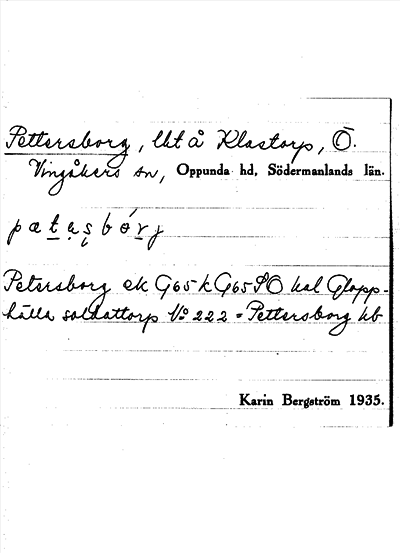 Pettersborg, lht å Klastorp, Ö.
Vingåkers sn, Oppunda hd, Södermanlands län.
pætạșbórj
Petersborg ek G65 k G65 SO kal Glopp-
hälla soldattorp No 222 = Pettersborg kb
Karin Bergström 1935.